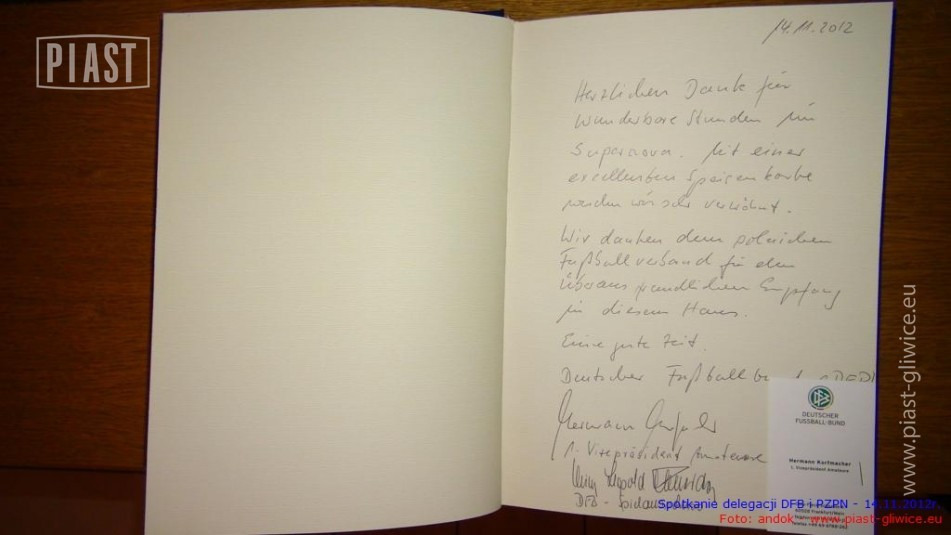 PIAST
14.11.2012
Herzlichen Dank für
wunderbare Stunden im
Supernova. Mit einer
excellenten Speisenkarte
werden wir sehr verwöhnt.
Wir danken dem polnischen
Fußballverband für den
überaus freundlichen Empfang
in diesem Haus.
Eine gute Zeit.
Deutscher Fußballbund
Hermann
1. Vizepräsident Amateure
Leopold
DFB -
DEUTSCHER
FUSSBALL-BUND
Hermann Korfmacher
1. Vizepräsident Amateure
www.piast-gliwice.eu
Spotkanie delegacji DFB i PZPN - 14.11.2012r.
Foto: andok - www.piast-gliwice.eu